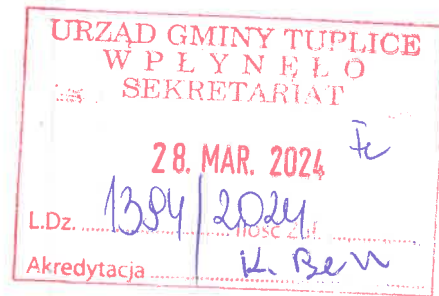 URZĄD GMINY TUPLICE
WPŁYNĘŁO
SEKRETARIAT
28. MAR. 2024
L.Dz. 1394/2024 Ilość Zał.
Akredytacja